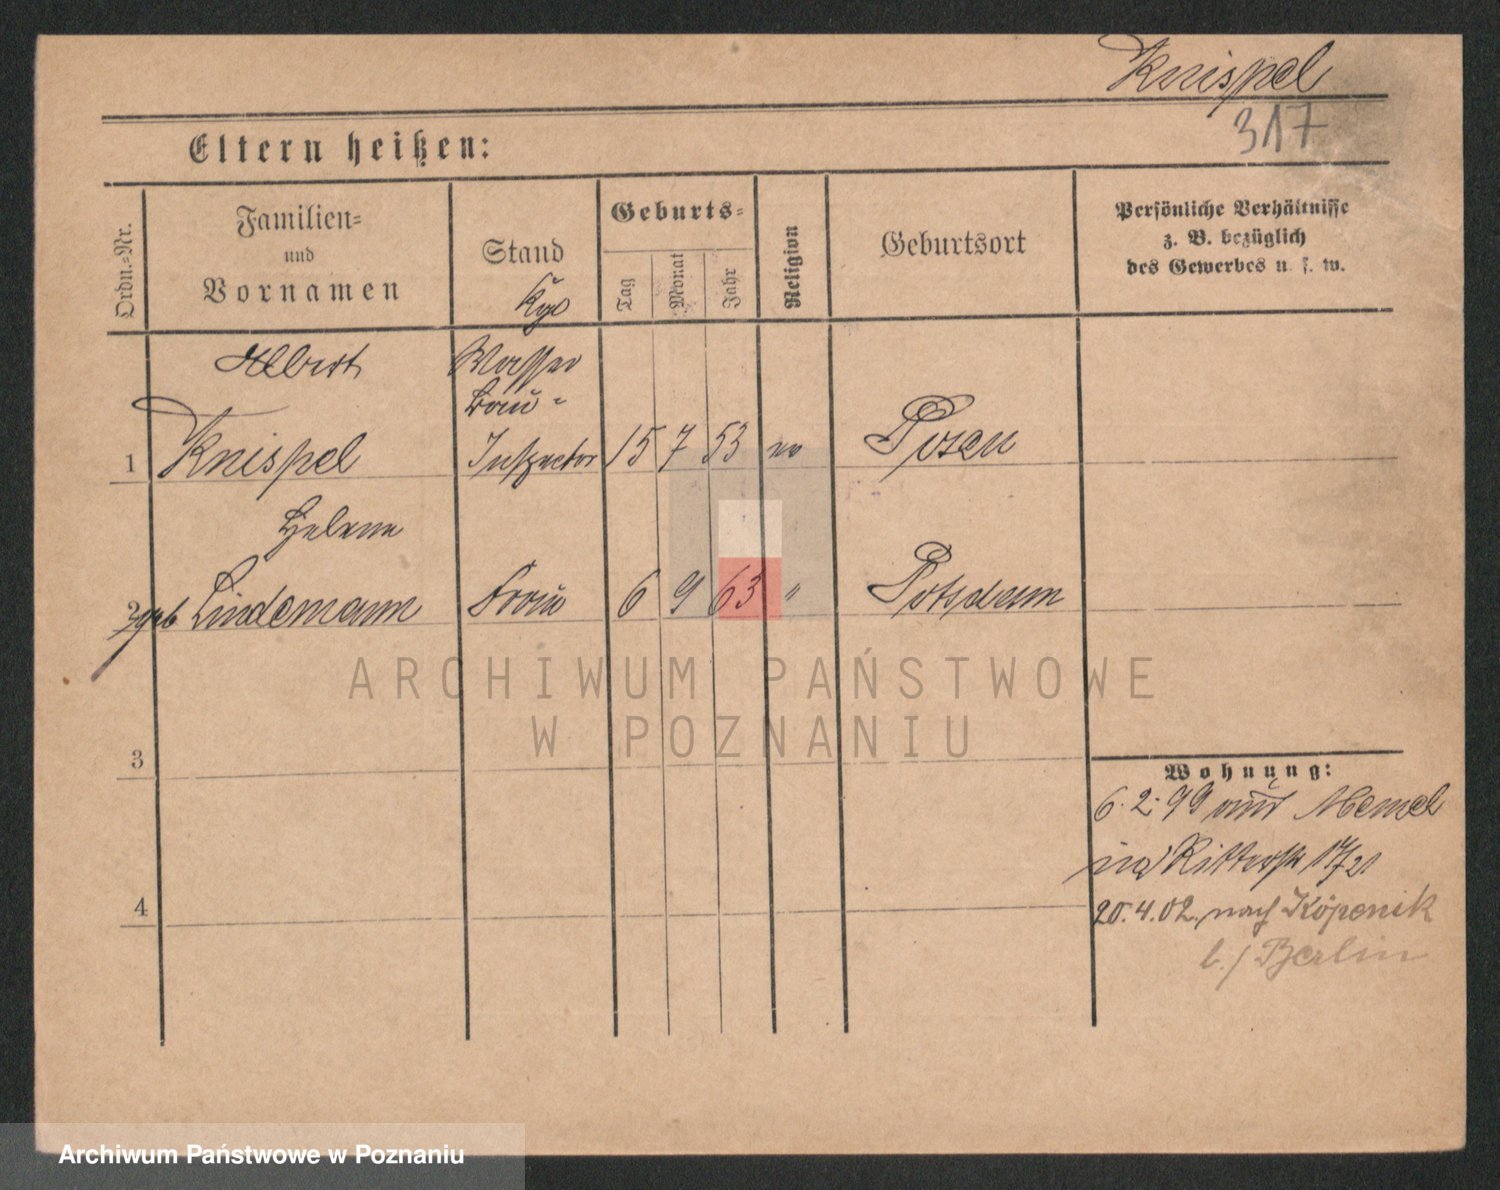 Knispel
317
Eltern heißen:
Ordn.-Nr.
Familien-
und
Vornamen
Stand
Kgl
Geburts-
Tag
Monat
Jahr
Religion
Geburtsort
Persönliche Verhältnisse
z. B. bezüglich
des Gewerbes u. s. w.
Albert
Wasser
Bau-
1 Knispel Inspector 15 7 53 ev Posen
Helene
2 geb Lindemann Frau 6 9 63 " Potsdam
ARCHIWUM PAŃSTWOWE
W POZNANIU
3
Wohnung:
6.2.99 aus Memel
Ritterstr 17/21
4
20.4.02. nach Köpenik
b./Berlin
Archiwum Państwowe w Poznaniu